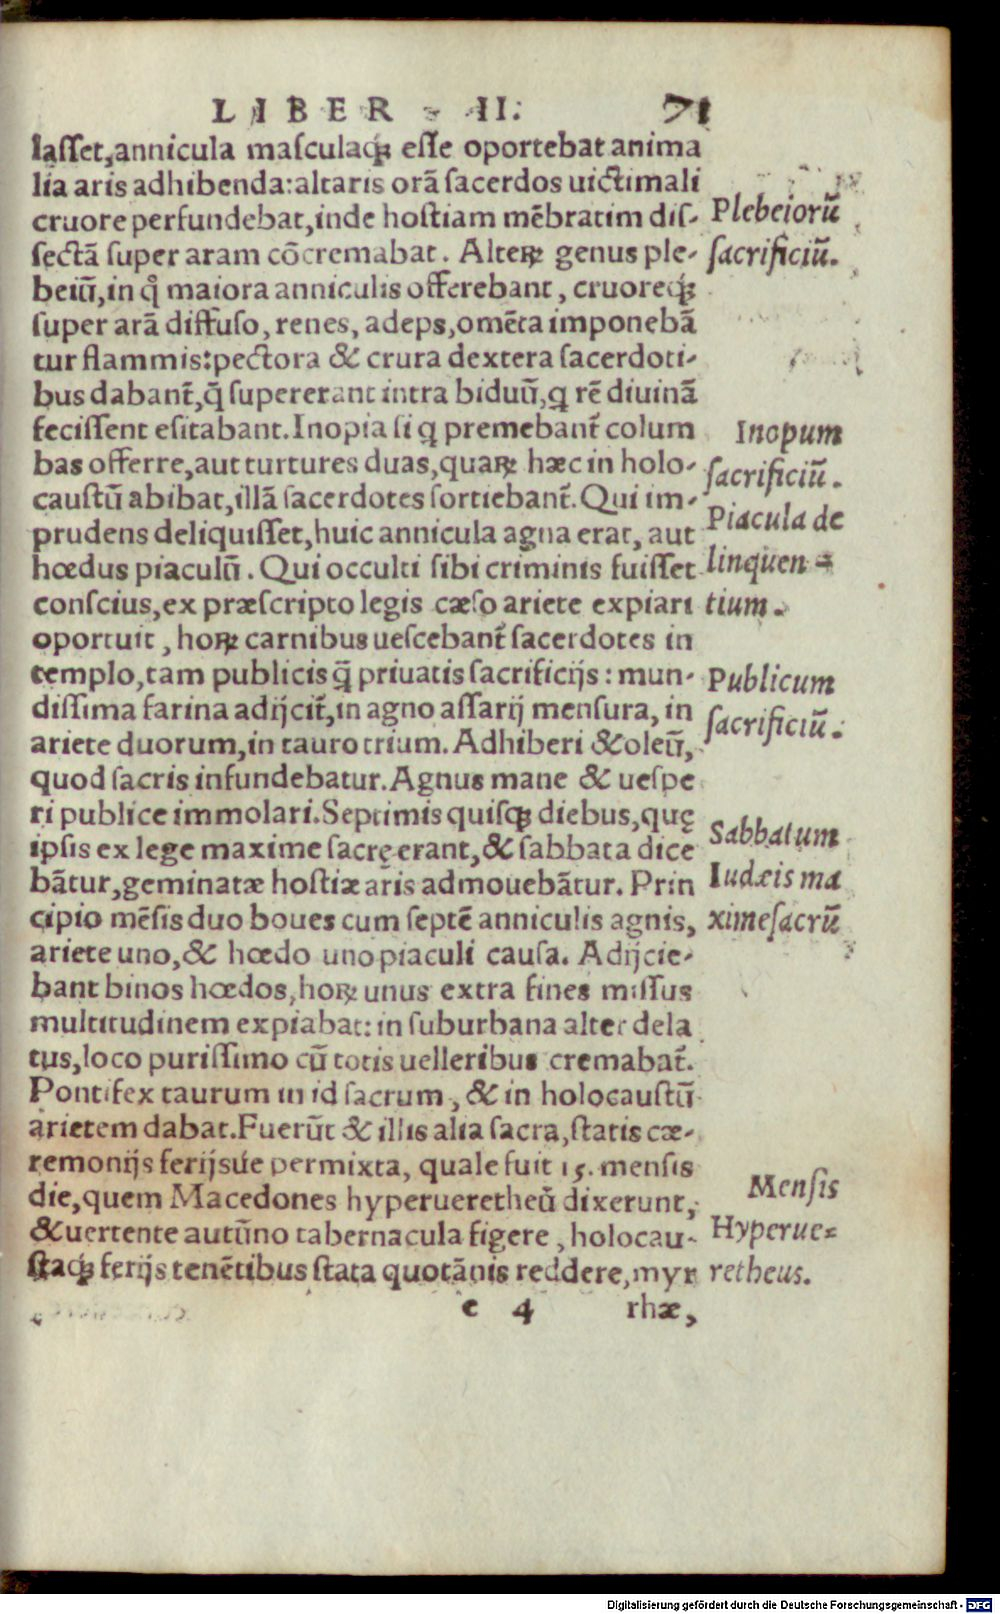 LIBER II. 71
lasset, annicula masculaq́ꝫ esse oportebat anima
lia aris adhibenda: altaris orā sacerdos uictimali
cruore perfundebat, inde hostiam mēbratim dis-
sectā super aram cōcremabat. Alteꝝ genus ple-
beiū, in q̊ maiora anniculis offerebant, cruoreq́ꝫ
super arā diffuso, renes, adeps, omēta imponebā
tur flammis: pectora & crura dextera sacerdoti-
bus dabant̃, q̄ supererant intra biduū, q rē diuinā
fecissent esitabant. Inopia si q premebant̃ colum
bas offerre, aut turtures duas, quaꝝ hæc in holo-
caustū abibat, illā sacerdotes sortiebant̃. Qui im-
prudens deliquisset, huic annicula agna erat, aut
hœdus piaculū. Qui occulti sibi criminis fuisset
conscius, ex præscripto legis cæso ariete expiari
oportuit, hoꝝ carnibus uescebant̃ sacerdotes in
templo, tam publicis q̄ priuatis sacrificijs: mun-
dissima farina adijcit̃, in agno assarij mensura, in
ariete duorum, in tauro trium. Adhiberi & oleū,
quod sacris infundebatur. Agnus mane & uespe
ri publice immolari. Septimis quisq́ꝫ diebus, quę
ipsis ex lege maxime sacrę erant, & sabbata dice
bātur, geminatæ hostiæ aris admouebātur. Prin
cipio mēsis duo boues cum septē anniculis agnis,
ariete uno, & hœdo uno piaculi causa. Adijcie-
bant binos hœdos, hoꝝ unus extra fines missus
multitudinem expiabat: in suburbana alter dela
tus, loco purissimo cū totis uelleribus cremabat̃.
Pontifex taurum in id sacrum, & in holocaustū
arietem dabat. Fuerūt & illis alia sacra, statis cæ-
remonijs ferijsúe permixta, quale fuit 15. mensis
die, quem Macedones hyperueretheū dixerunt,
& uertente autūno tabernacula figere, holocau-
staq́ꝫ ferijs tenētibus stata quotānis reddere, myr
e 4 rhæ,
Plebeiorū
sacrificiū.
Inopum
sacrificiū.
Piacula de
linquen=
tium.
Publicum
sacrificiū.
Sabbatum
Iudæis ma
xime sacrū
Mensis
Hyperue=
retheus.
Digitalisierung gefördert durch die Deutsche Forschungsgemeinschaft - DFG